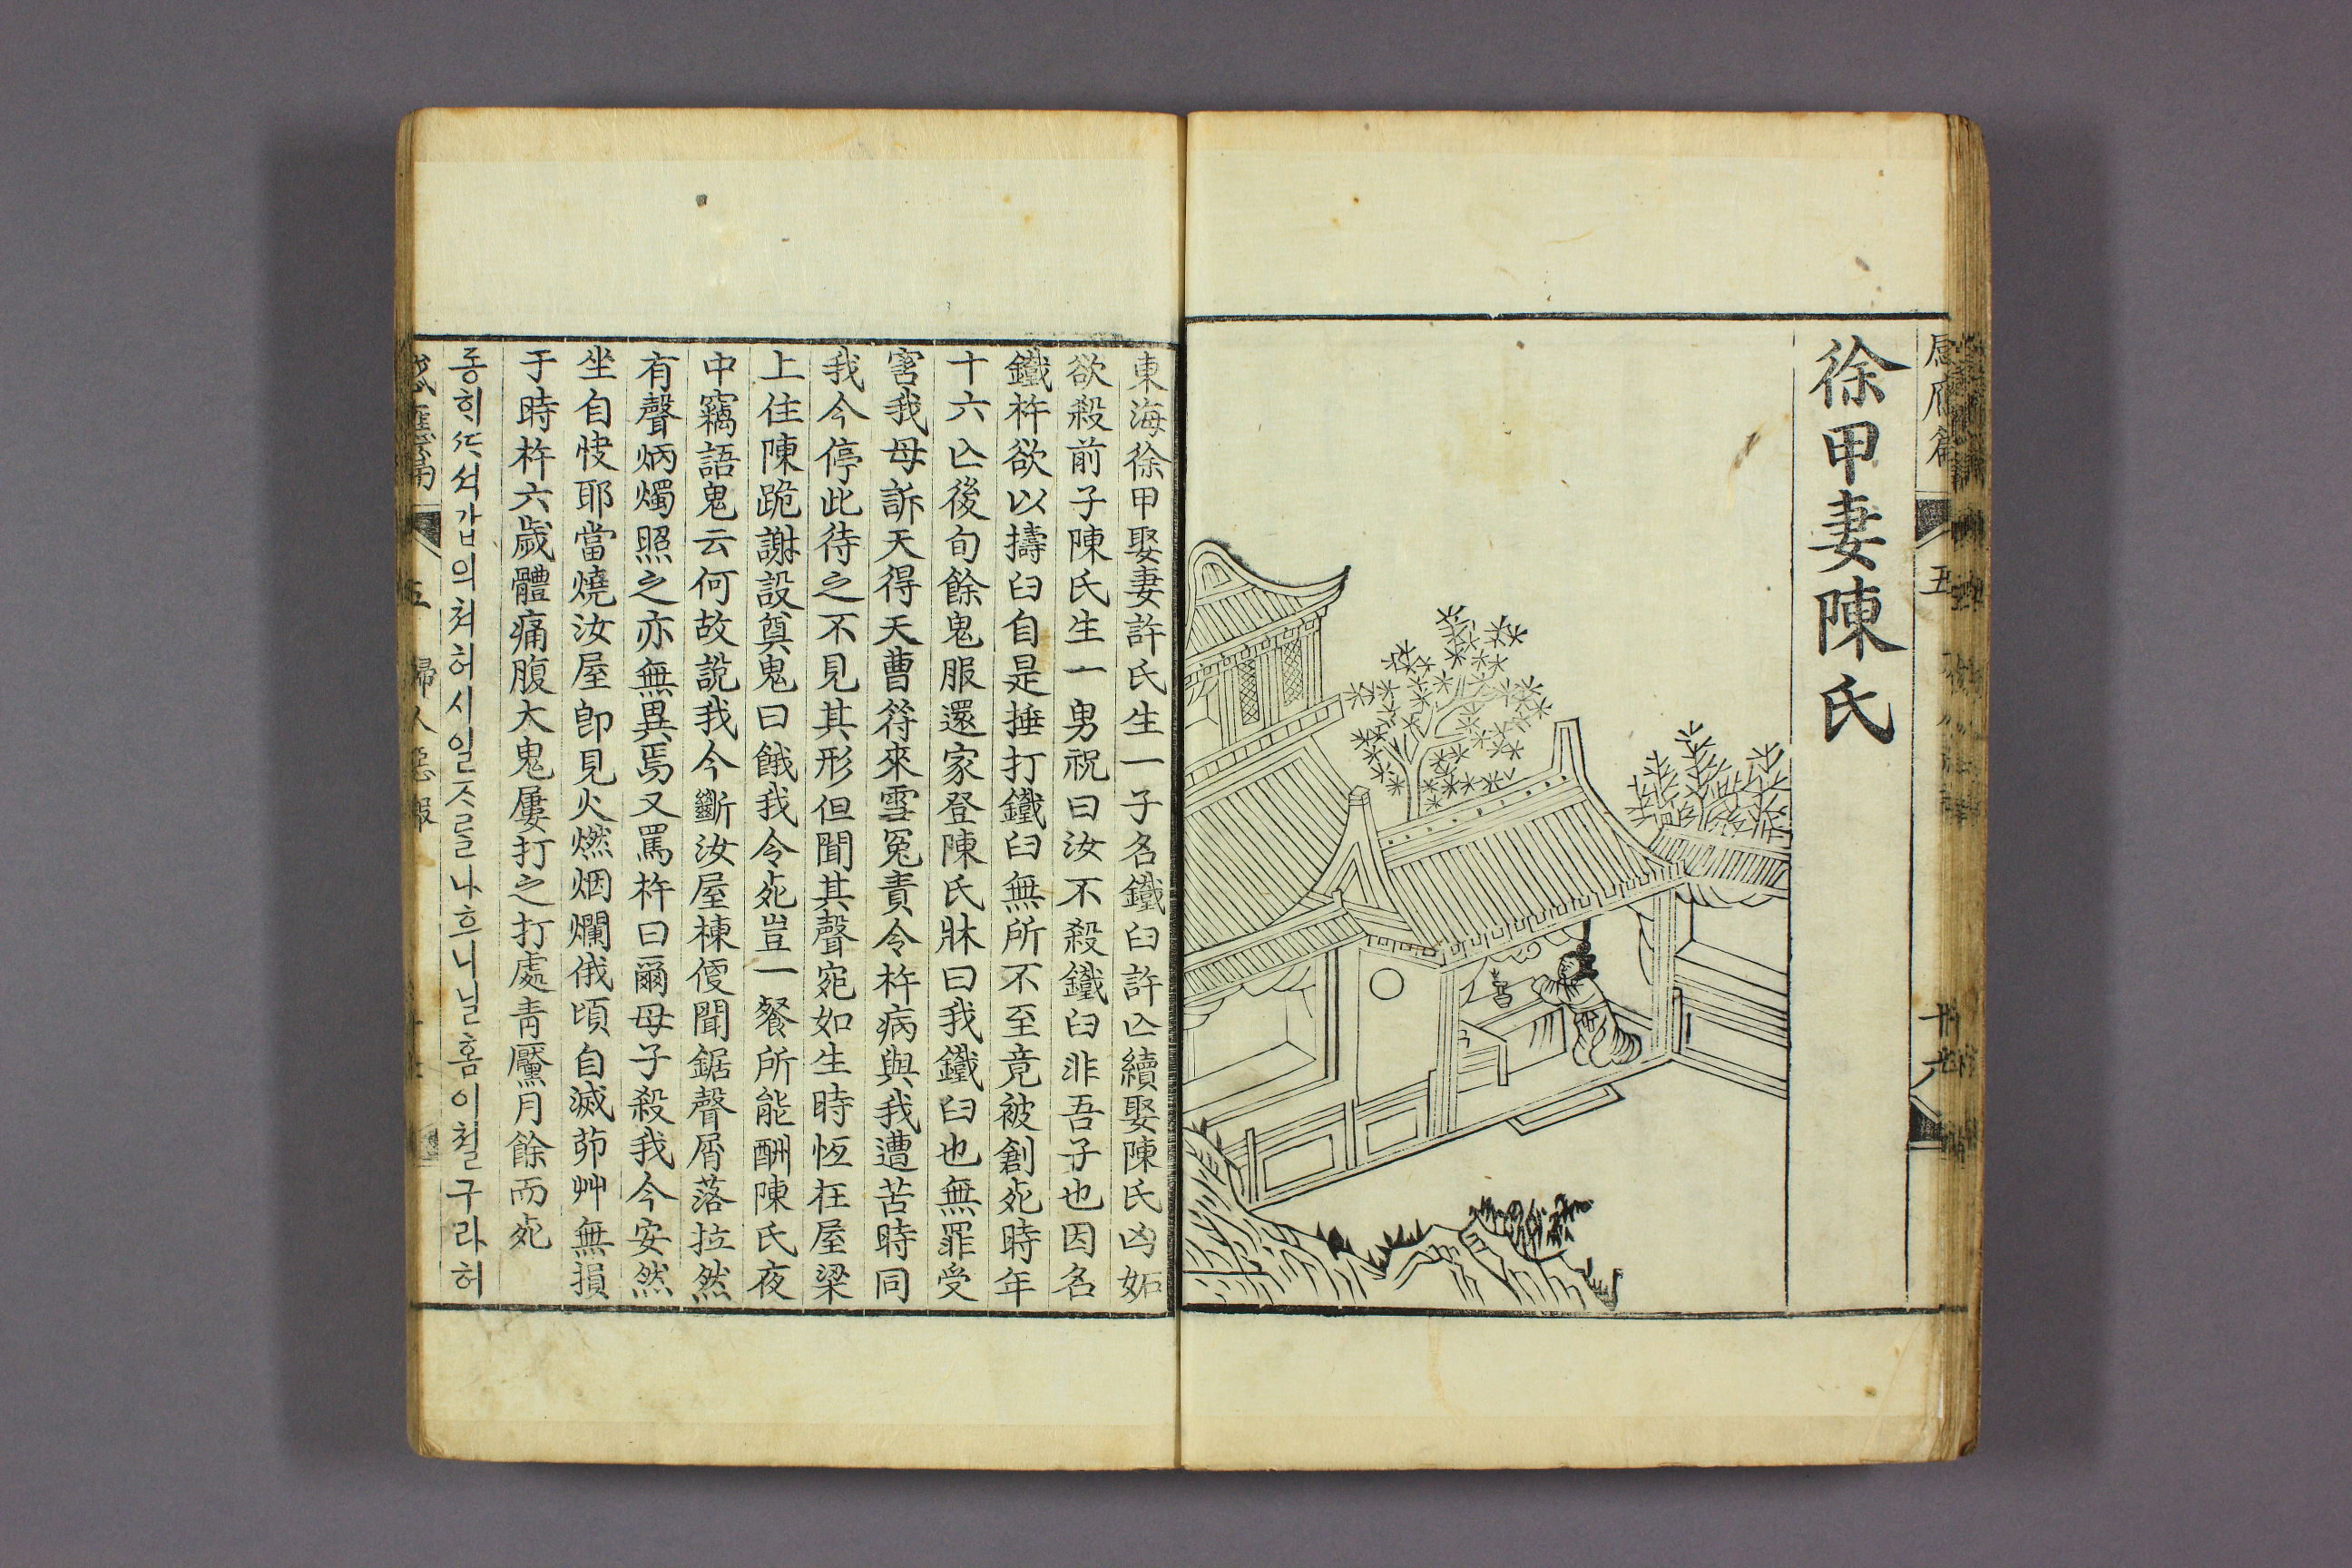 徐甲妻陳氏
五
東海徐甲娶妻許氏生一子名鐵臼許亾續娶陳氏凶妬
欲殺前子陳氏生一男祝曰汝不殺鐵臼非吾子也因名
鐵杵欲以擣臼自是捶打鐵臼無所不至竟被創死時年
十六亾後旬餘鬼服還家登陳氏牀曰我鐵臼也無罪受
害我母訴天得天曹符來雪冤責令杵病與我遭苦時同
我今停此待之不見其形但聞其聲宛如生時恆在屋梁
上住陳跪謝設奠鬼曰餓我令死豈一餐所能酬陳氏夜
中竊語鬼云何故說我今斷汝屋棟便聞鋸聲屑落拉然
有聲炳燭照之亦無異焉又罵杵曰爾母子殺我今安然
坐自快耶當燒汝屋卽見火燃烟爛俄頃自滅茆艸無損
于時杵六歲體痛腹大鬼屢打之打處靑黶月餘而死
동ᄒᆡᄯᅡ셔갑의쳐허시일ᄌᆞ를나흐니닐홈이쳘구라허
五 婦人惡報